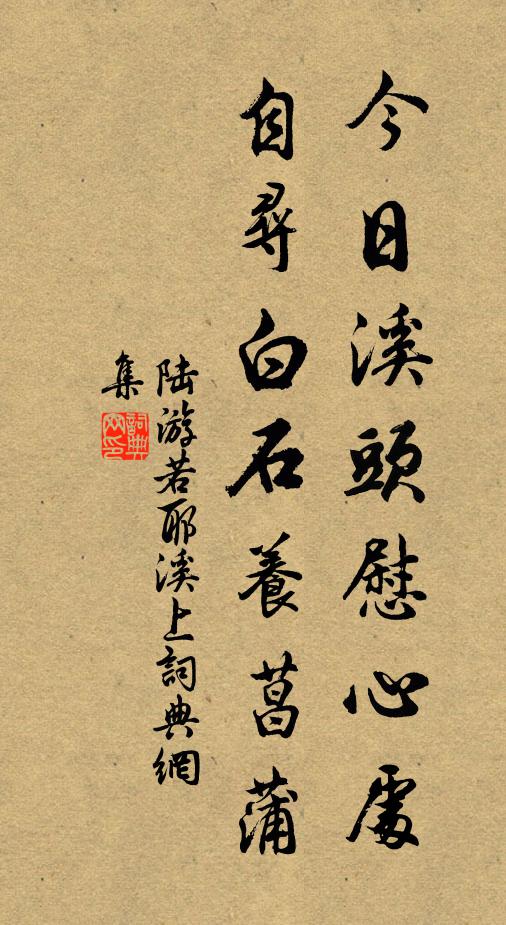 今日溪頭慰心處
自尋白石養菖蒲
陆游若耶溪上詞典網
集
詞典
网印